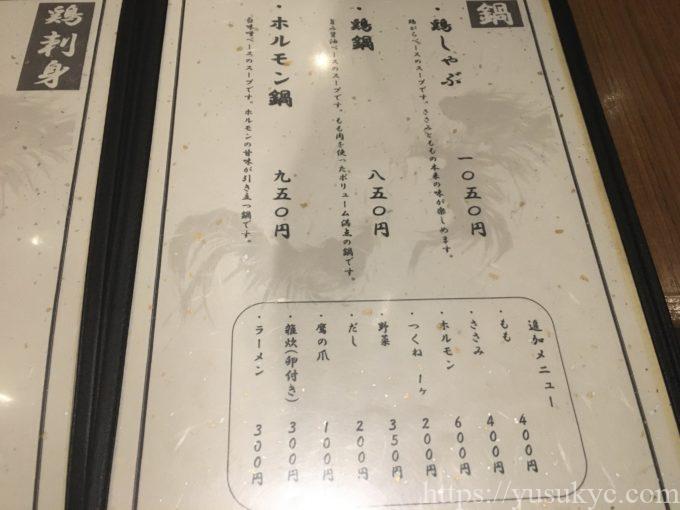 鍋
・鶏しゃぶ 一〇五〇円
鶏がらベースのスープです。ささみとももの本来の味が楽しめます。
・鶏鍋 八五〇円
醤油ベースのスープです。もも肉を使ったボリューム満点の鍋です。
・ホルモン鍋 九五〇円
白味噌ベースのスープです。ホルモンの甘味が引き立つ鍋です。
追加メニュー
・もも 400円
・ささみ 400円
・ホルモン 600円
・つくね 一ヶ 200円
・野菜 350円
・だし 200円
・鷹の爪 100円
・雑炊(卵付き) 300円
・ラーメン 300円
鶏刺身
https://yusukyc.com